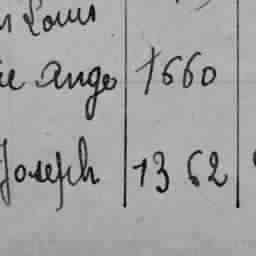 Louis
Ange 1660
Joseph 1362